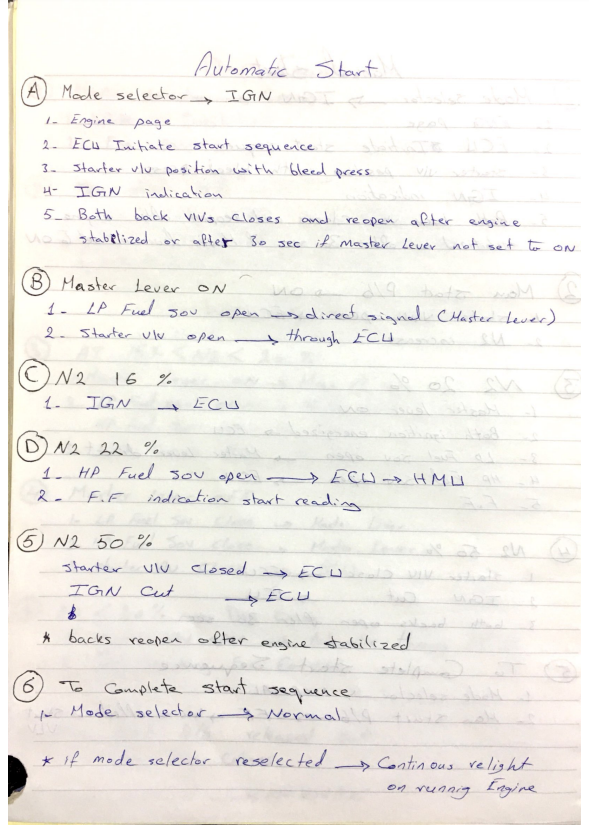 Automatic Start
A Mode selector → IGN
1- Engine page
2- ECU Initiate start sequence
3- Starter vlv position with bleed press
4- IGN indication
5- Both back vlvs closes and reopen after engine
stabilized or after 30 sec if Master Lever not set to ON
B Master Lever ON
1- LP Fuel sov open → direct signal (Master Lever)
2- Starter vlv open → through ECU
C N2 16 %
1- IGN → ECU
D N2 22 %
1- HP Fuel sov open → ECU → HMU
2- F.F indication start reading
5 N2 50 %
starter vlv closed → ECU
IGN Cut → ECU
* backs reopen after engine stabilized
6 To Complete start sequence
1- Mode selector → Normal
* if mode selector reselected → Continous relight
on runnig Engine